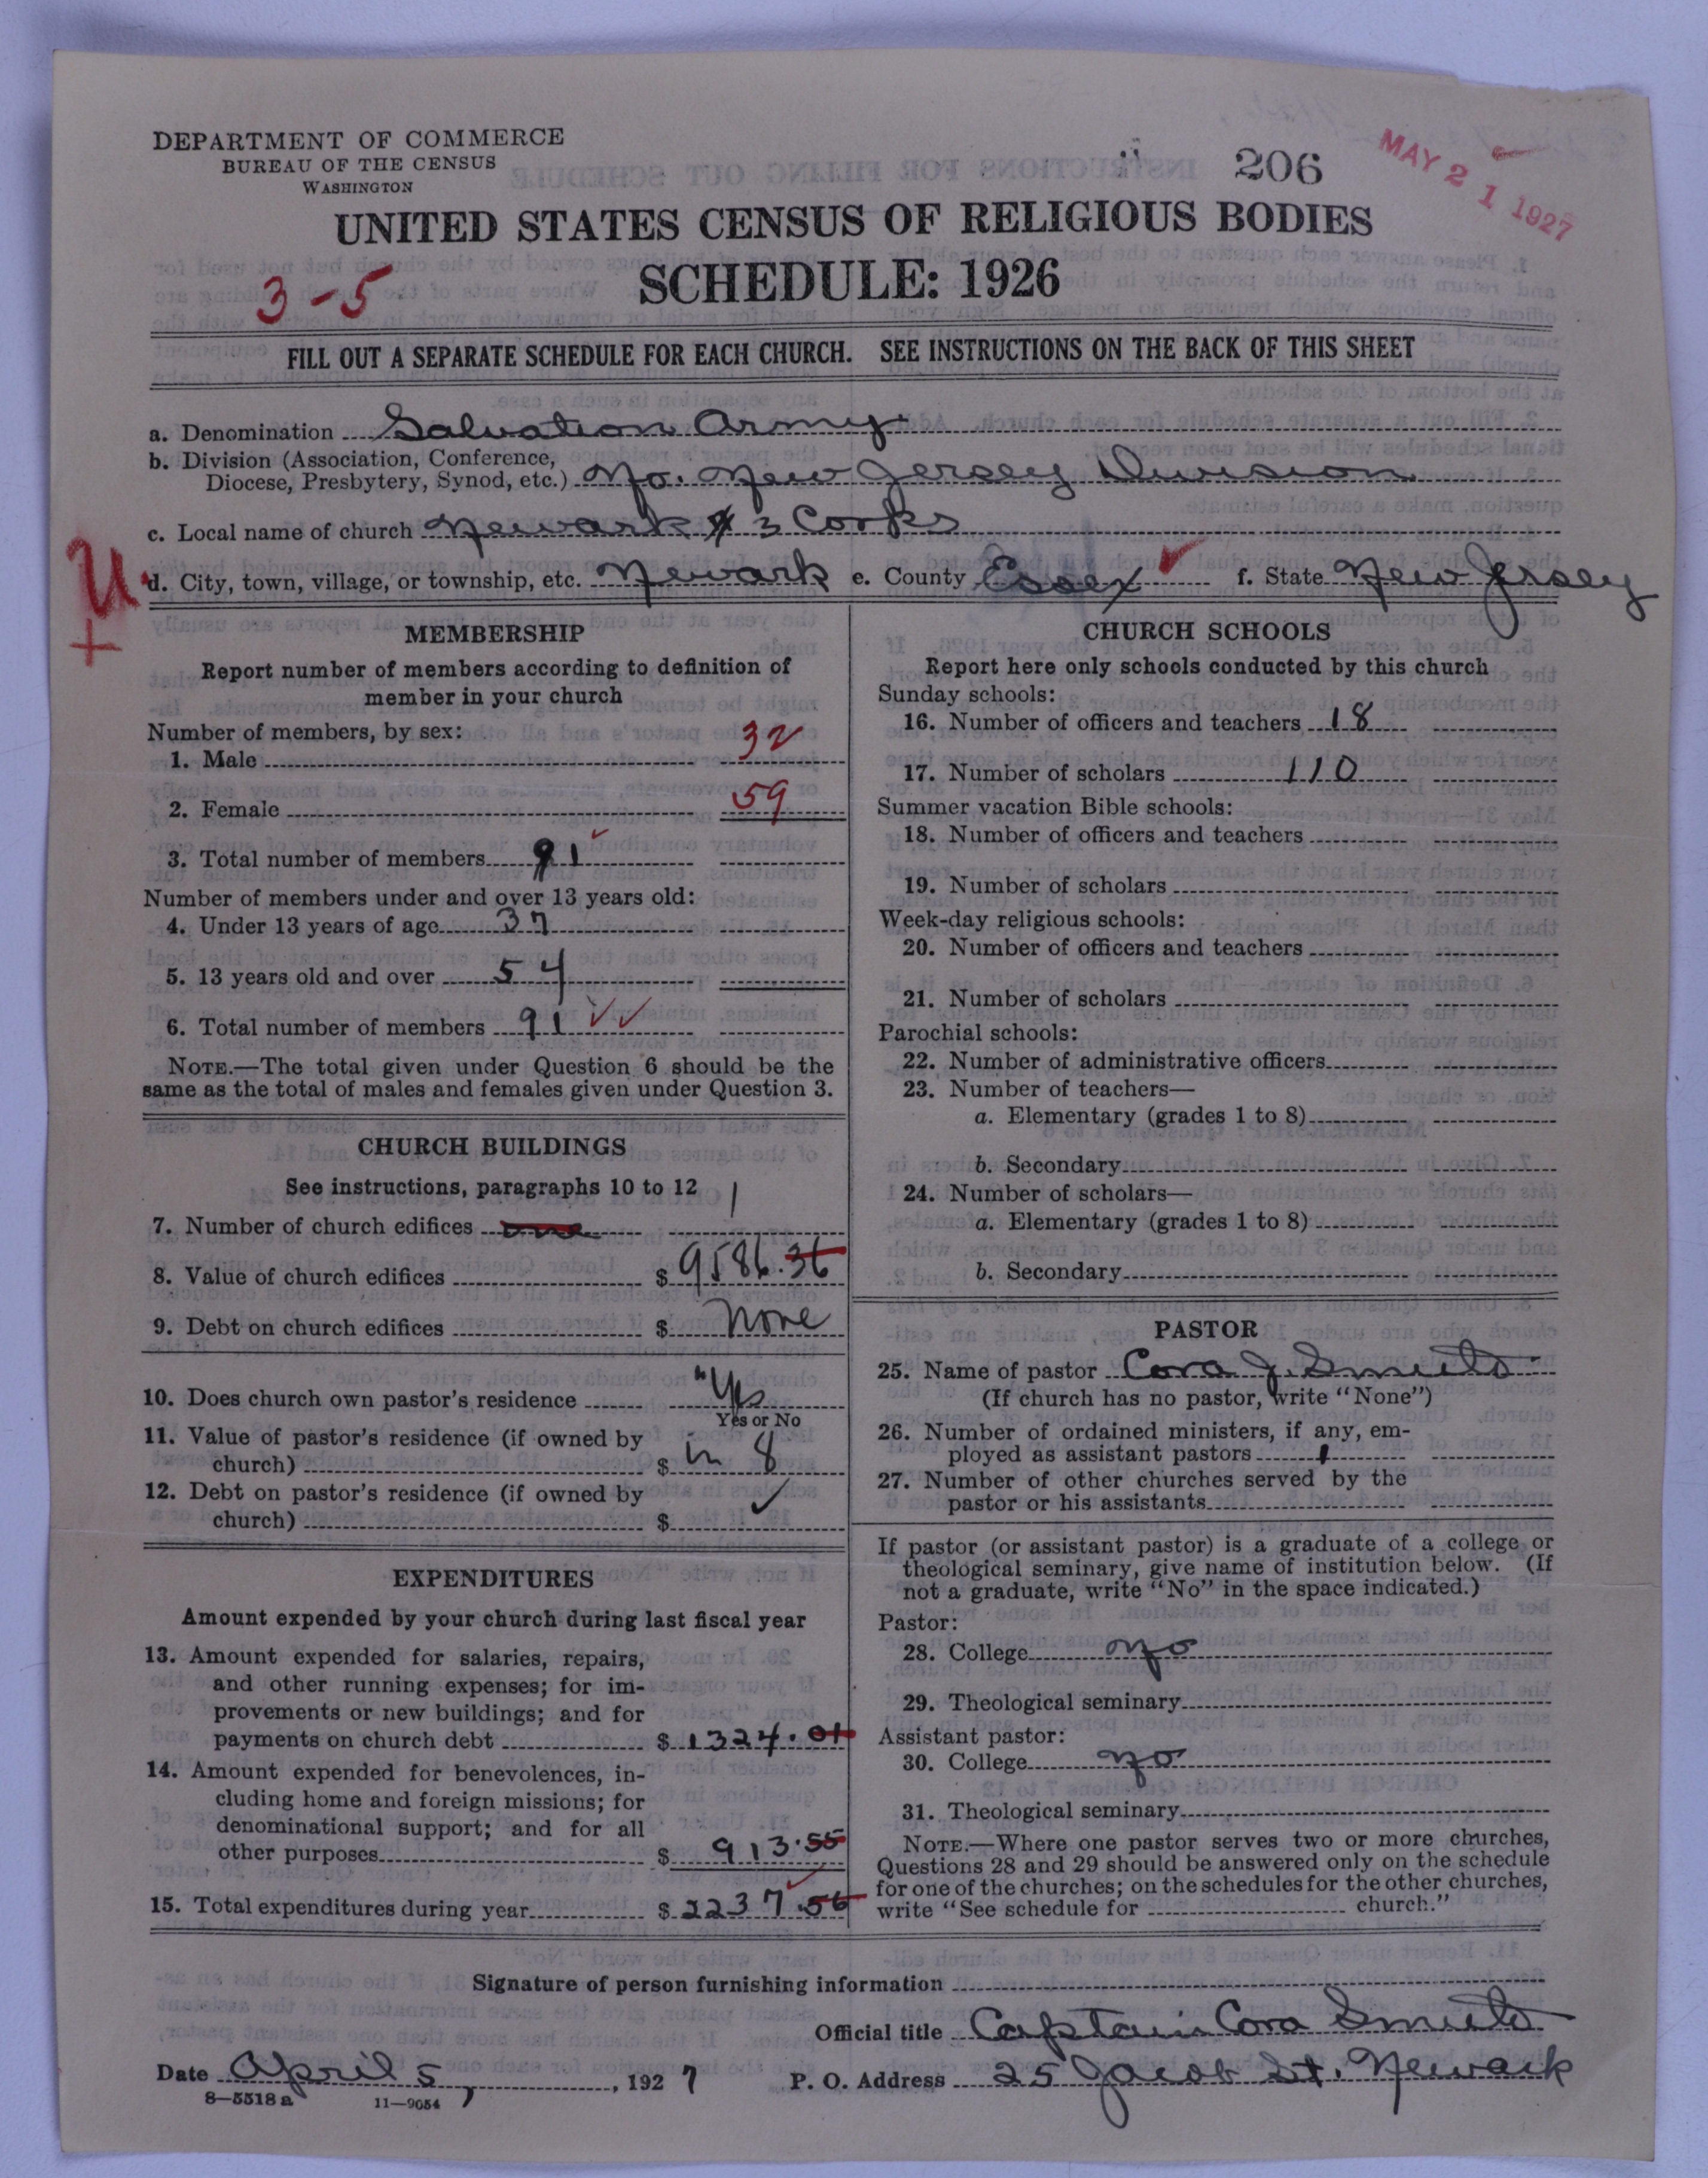 DEPARTMENT OF COMMERCE
BUREAU OF THE CENSUS
WASHINGTON
206
MAY 21 1927
UNITED STATES CENSUS OF RELIGIOUS BODIES
SCHEDULE: 1926
3-5
FILL OUT A SEPARATE SCHEDULE FOR EACH CHURCH. SEE INSTRUCTIONS ON THE BACK OF THIS SHEET
a. Denomination Salvation Army
b. Division (Association, Conference,
Diocese, Presbytery, Synod, etc.) No. New Jersey Division
c. Local name of church Newark # 3 Corps
U
+
d. City, town, village, or township, etc. Newark e. County Essex f. State New Jersey
MEMBERSHIP
Report number of members according to definition of
member in your church
Number of members, by sex:
1. Male 32
2. Female 59
3. Total number of members 91
Number of members under and over 13 years old:
4. Under 13 years of age 37
5. 13 years old and over 54
6. Total number of members 91
NOTE.—The total given under Question 6 should be the
same as the total of males and females given under Question 3.
CHURCH BUILDINGS
See instructions, paragraphs 10 to 12
7. Number of church edifices one 1
8. Value of church edifices $ 9586.36
9. Debt on church edifices $ None
10. Does church own pastor's residence "Yes
Yes or No
11. Value of pastor's residence (if owned by
church) $ in 8
12. Debt on pastor's residence (if owned by
church) $ ✓
EXPENDITURES
Amount expended by your church during last fiscal year
13. Amount expended for salaries, repairs,
and other running expenses; for im-
provements or new buildings; and for
payments on church debt $ 1324.01
14. Amount expended for benevolences, in-
cluding home and foreign missions; for
denominational support; and for all
other purposes $ 913.55
15. Total expenditures during year $ 2237.56
CHURCH SCHOOLS
Report here only schools conducted by this church
Sunday schools:
16. Number of officers and teachers 18
17. Number of scholars 110
Summer vacation Bible schools:
18. Number of officers and teachers
19. Number of scholars
Week-day religious schools:
20. Number of officers and teachers
21. Number of scholars
Parochial schools:
22. Number of administrative officers
23. Number of teachers—
a. Elementary (grades 1 to 8)
b. Secondary
24. Number of scholars—
a. Elementary (grades 1 to 8)
b. Secondary
PASTOR
25. Name of pastor Cora J.
(If church has no pastor, write "None")
26. Number of ordained ministers, if any, em-
ployed as assistant pastors 1
27. Number of other churches served by the
pastor or his assistants
If pastor (or assistant pastor) is a graduate of a college or
theological seminary, give name of institution below. (If
not a graduate, write "No" in the space indicated.)
Pastor:
28. College No
29. Theological seminary
Assistant pastor:
30. College No
31. Theological seminary
NOTE.—Where one pastor serves two or more churches,
Questions 28 and 29 should be answered only on the schedule
for one of the churches; on the schedules for the other churches,
write "See schedule for church."
Signature of person furnishing information
Official title Captain Cora
Date April 5, 1927 P. O. Address 25 Jacob St. Newark
8—5518a 11—9054